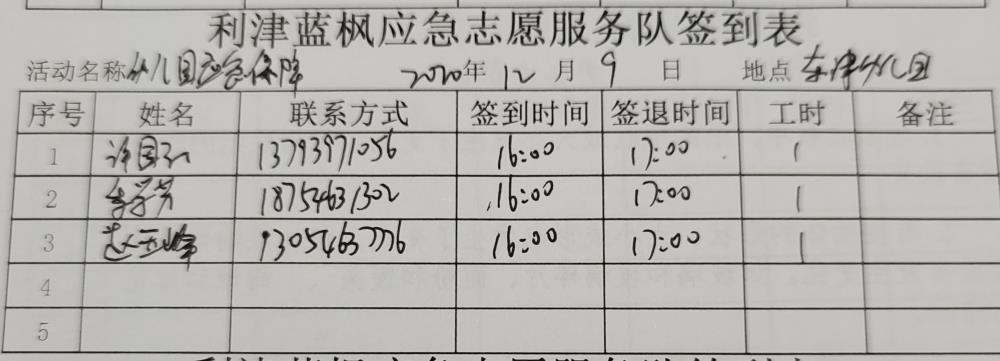 利津蓝枫应急志愿服务队签到表
活动名称 幼儿园应急保障 2020年 12 月 9 日 地点 东津幼儿园
序号 姓名 联系方式 签到时间 签退时间 工时 备注
1 许国 13793971056 16:00 17:00 1
2 李学芳 18754631302 16:00 17:00 1
3 赵玉峰 13054637776 16:00 17:00 1
4
5